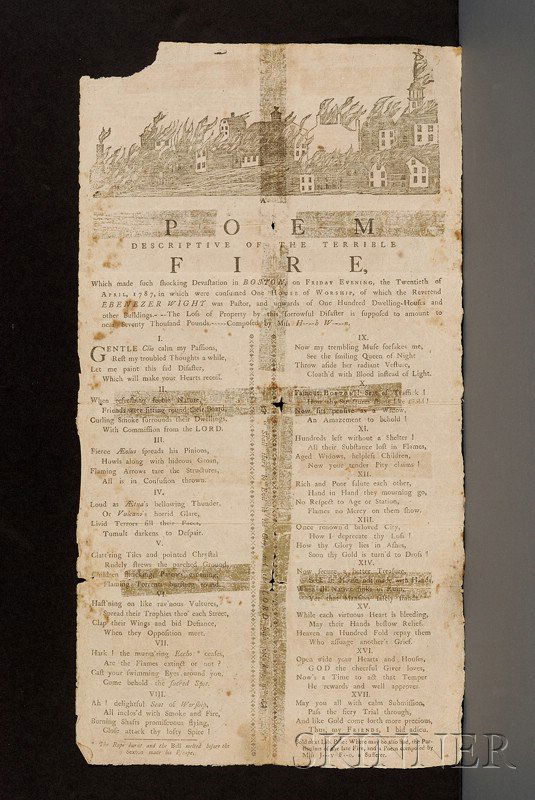 A
POEM
DESCRIPTIVE OF THE TERRIBLE
FIRE,
Which made such shocking Devastation in BOSTON, on FRIDAY EVENING, the Twentieth of
APRIL, 1787, in which were consumed One HOUSE of WORSHIP, of which the Reverend
EBENEZER WIGHT was Pastor, and upwards of One Hundred Dwelling-Houses and
other Buildings.---The Loss of Property by this sorrowful Disaster is supposed to amount to
near Seventy Thousand Pounds.----Composed by Miss H---h W---n.
I.
GENTLE Clio calm my Passions,
Rest my troubled Thoughts a while,
Let me paint this sad Disaster,
Which will make your Hearts recoil.
II.
When refreshing feeble Nature,
Friends were sitting round their Board,
Curling Smoke sorrounds their Dwellings,
With Commission from the LORD.
III.
Fierce Æolus spreads his Pinions,
Howls along with hideous Groan,
Flaming Arrows tare the Structures,
All is in Confusion thrown.
IV.
Loud as Ætna's bellowing Thunder,
Or Vulcano's horrid Glare,
Livid Terrors fill their Faces,
Tumult darkens to Despair.
V.
Clatt'ring Tiles and pointed Chrystal
Rudely strews the parched Ground,
Children shrieking, Parents groaning,
Flaming Torrents bursting round.
VI.
Hast'ning on like rav'nous Vultures,
Spread their Trophies thro' each Street,
Clap their Wings and bid Defiance,
When they Opposition meet.
VII.
Hark! the murm'ring Eccho * ceases,
Are the Flames extinct or not?
Cast your swimming Eyes around you,
Come behold the sacred Spot.
VIII.
Ah! delightful Seat of Worship,
All inclos'd with Smoke and Fire,
Burning Shafts promiscuous flying,
Close attack thy lofty Spire!
* The Rope burnt and the Bell melted before the
Sexton made his Escape.
IX.
Now my trembling Muse forsakes me,
See the smiling Queen of Night
Throw aside her radiant Vesture,
Cloath'd with Blood instead of Light.
X.
Famous BOSTON! Seat of Traffick!
How thy Structures
Now sit pensive as a Widow,
An Amazement to behold!
XI.
Hundreds left without a Shelter!
All their Substance lost in Flames,
Aged Widows, helpless Children,
Now your tender Pity claims!
XII.
Rich and Poor salute each other,
Hand in Hand they mourning go,
No Respect to Age or Station,
Flames no Mercy on them show.
XIII.
Once renown'd beloved City,
How I deprecate thy Loss!
How thy Glory lies in Ashes,
Soon thy Gold is turn'd to Dross!
XIV.
Now secure a better Treasure,
Seek an House not made with Hands,
When all Nature sinks in Ruin,
Yet that Mansion safely stands.
XV.
While each virtuous Heart is bleeding,
May their Hands bestow Relief,
Heaven an Hundred Fold repay them
Who assuage another's Grief.
XVI.
Open wide your Hearts and Houses,
GOD the cheerful Giver loves,
Now's a Time to act that Temper
He rewards and well approves.
XVII.
May you all with calm Submission,
Pass the fiery Trial through,
And like Gold come forth more precious,
Thus, my FRIENDS, I bid adieu.
Where may be also had, the Par-
ticulars of the late Fire, and a Poem composed by
a Sufferer.
SKINNER